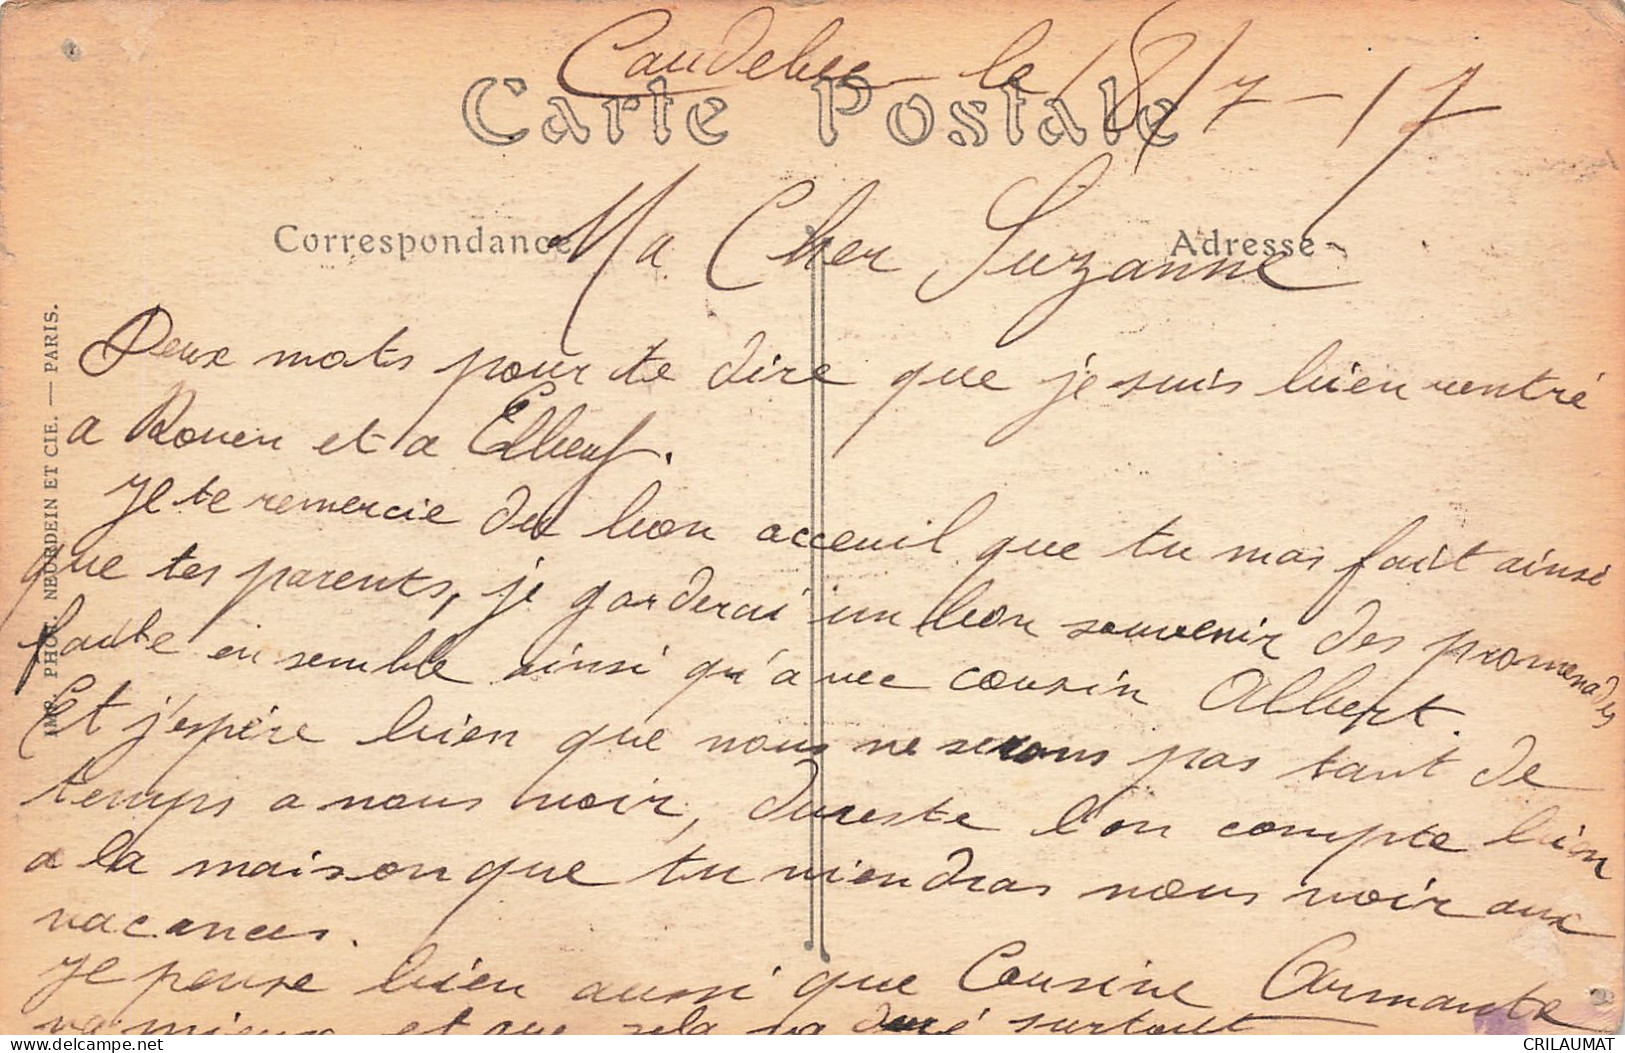 Caudebec le 18/7-17
Carte Postale
Correspondance
Adresse
Ma Cher Suzanne
Deux mots pour te dire que je suis bien rentré
a Rouen et a Elbeuf.
Je te remercie du bon acceuil que tu mas fait ainsi
que tes parents, je garderai un bon souvenir des promenades
faite en semble ainsi qu'avec cousin Albert.
Et j'espère bien que nous ne serons pas tant de
temps a nous voir, dureste l'on compte bien
a la maison que tu viendras nous voir aux
vacances.
Je pense bien aussi que Cousine Armante
va mieux et que sela va duré surtout
IMP. PHOT. NEURDEIN ET CIE. — PARIS.
CRILAUMAT